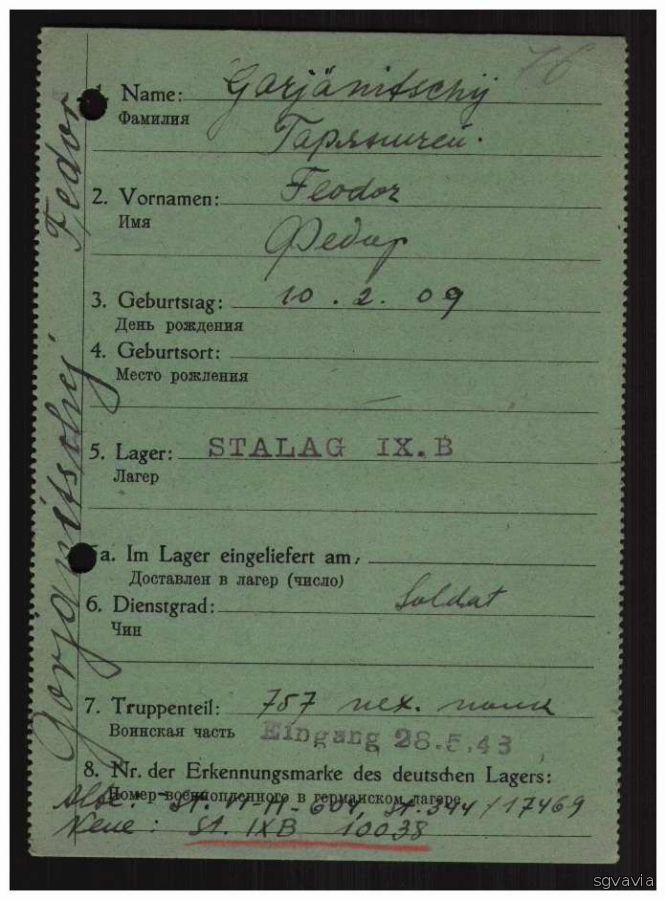 76
1. Name: Gorjänitschij
Фамилия
Гаряничей.
2. Vornamen: Feodor
Имя
Федир
3. Geburtstag: 10.2.09
День рождения
4. Geburtsort:
Место рожления
5. Lager: STALAG IX.B
Лагер
5a. Im Lager eingeliefert am:
Доставлен в лагер (число)
6. Dienstgrad: Soldat
Чин
7. Truppenteil: 757 пех. полк
Воинская часть Eingang 28.5.43
8. Nr. der Erkennungsmarke des deutschen Lagers:
Номер военнопленного в германском лагере
Alte: St. 344/17469
Neue: St. IXB 10038
Gorjanitschej Fedor
sgvavia